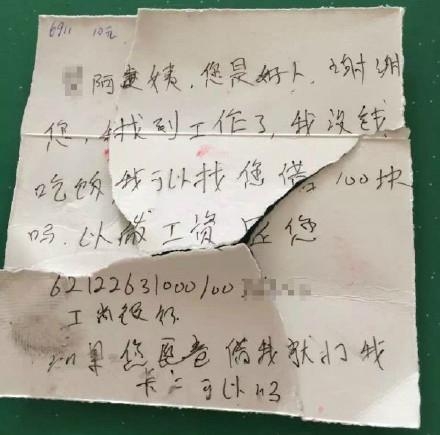 6911 10元
阿姨姨，您是好人，谢谢
您，我找到工作了，我没钱
吃饭我可以找您借 100块
吗．以后工资还您
62122631000100
工商银行
如果您愿意借我就打我
卡上可以吗